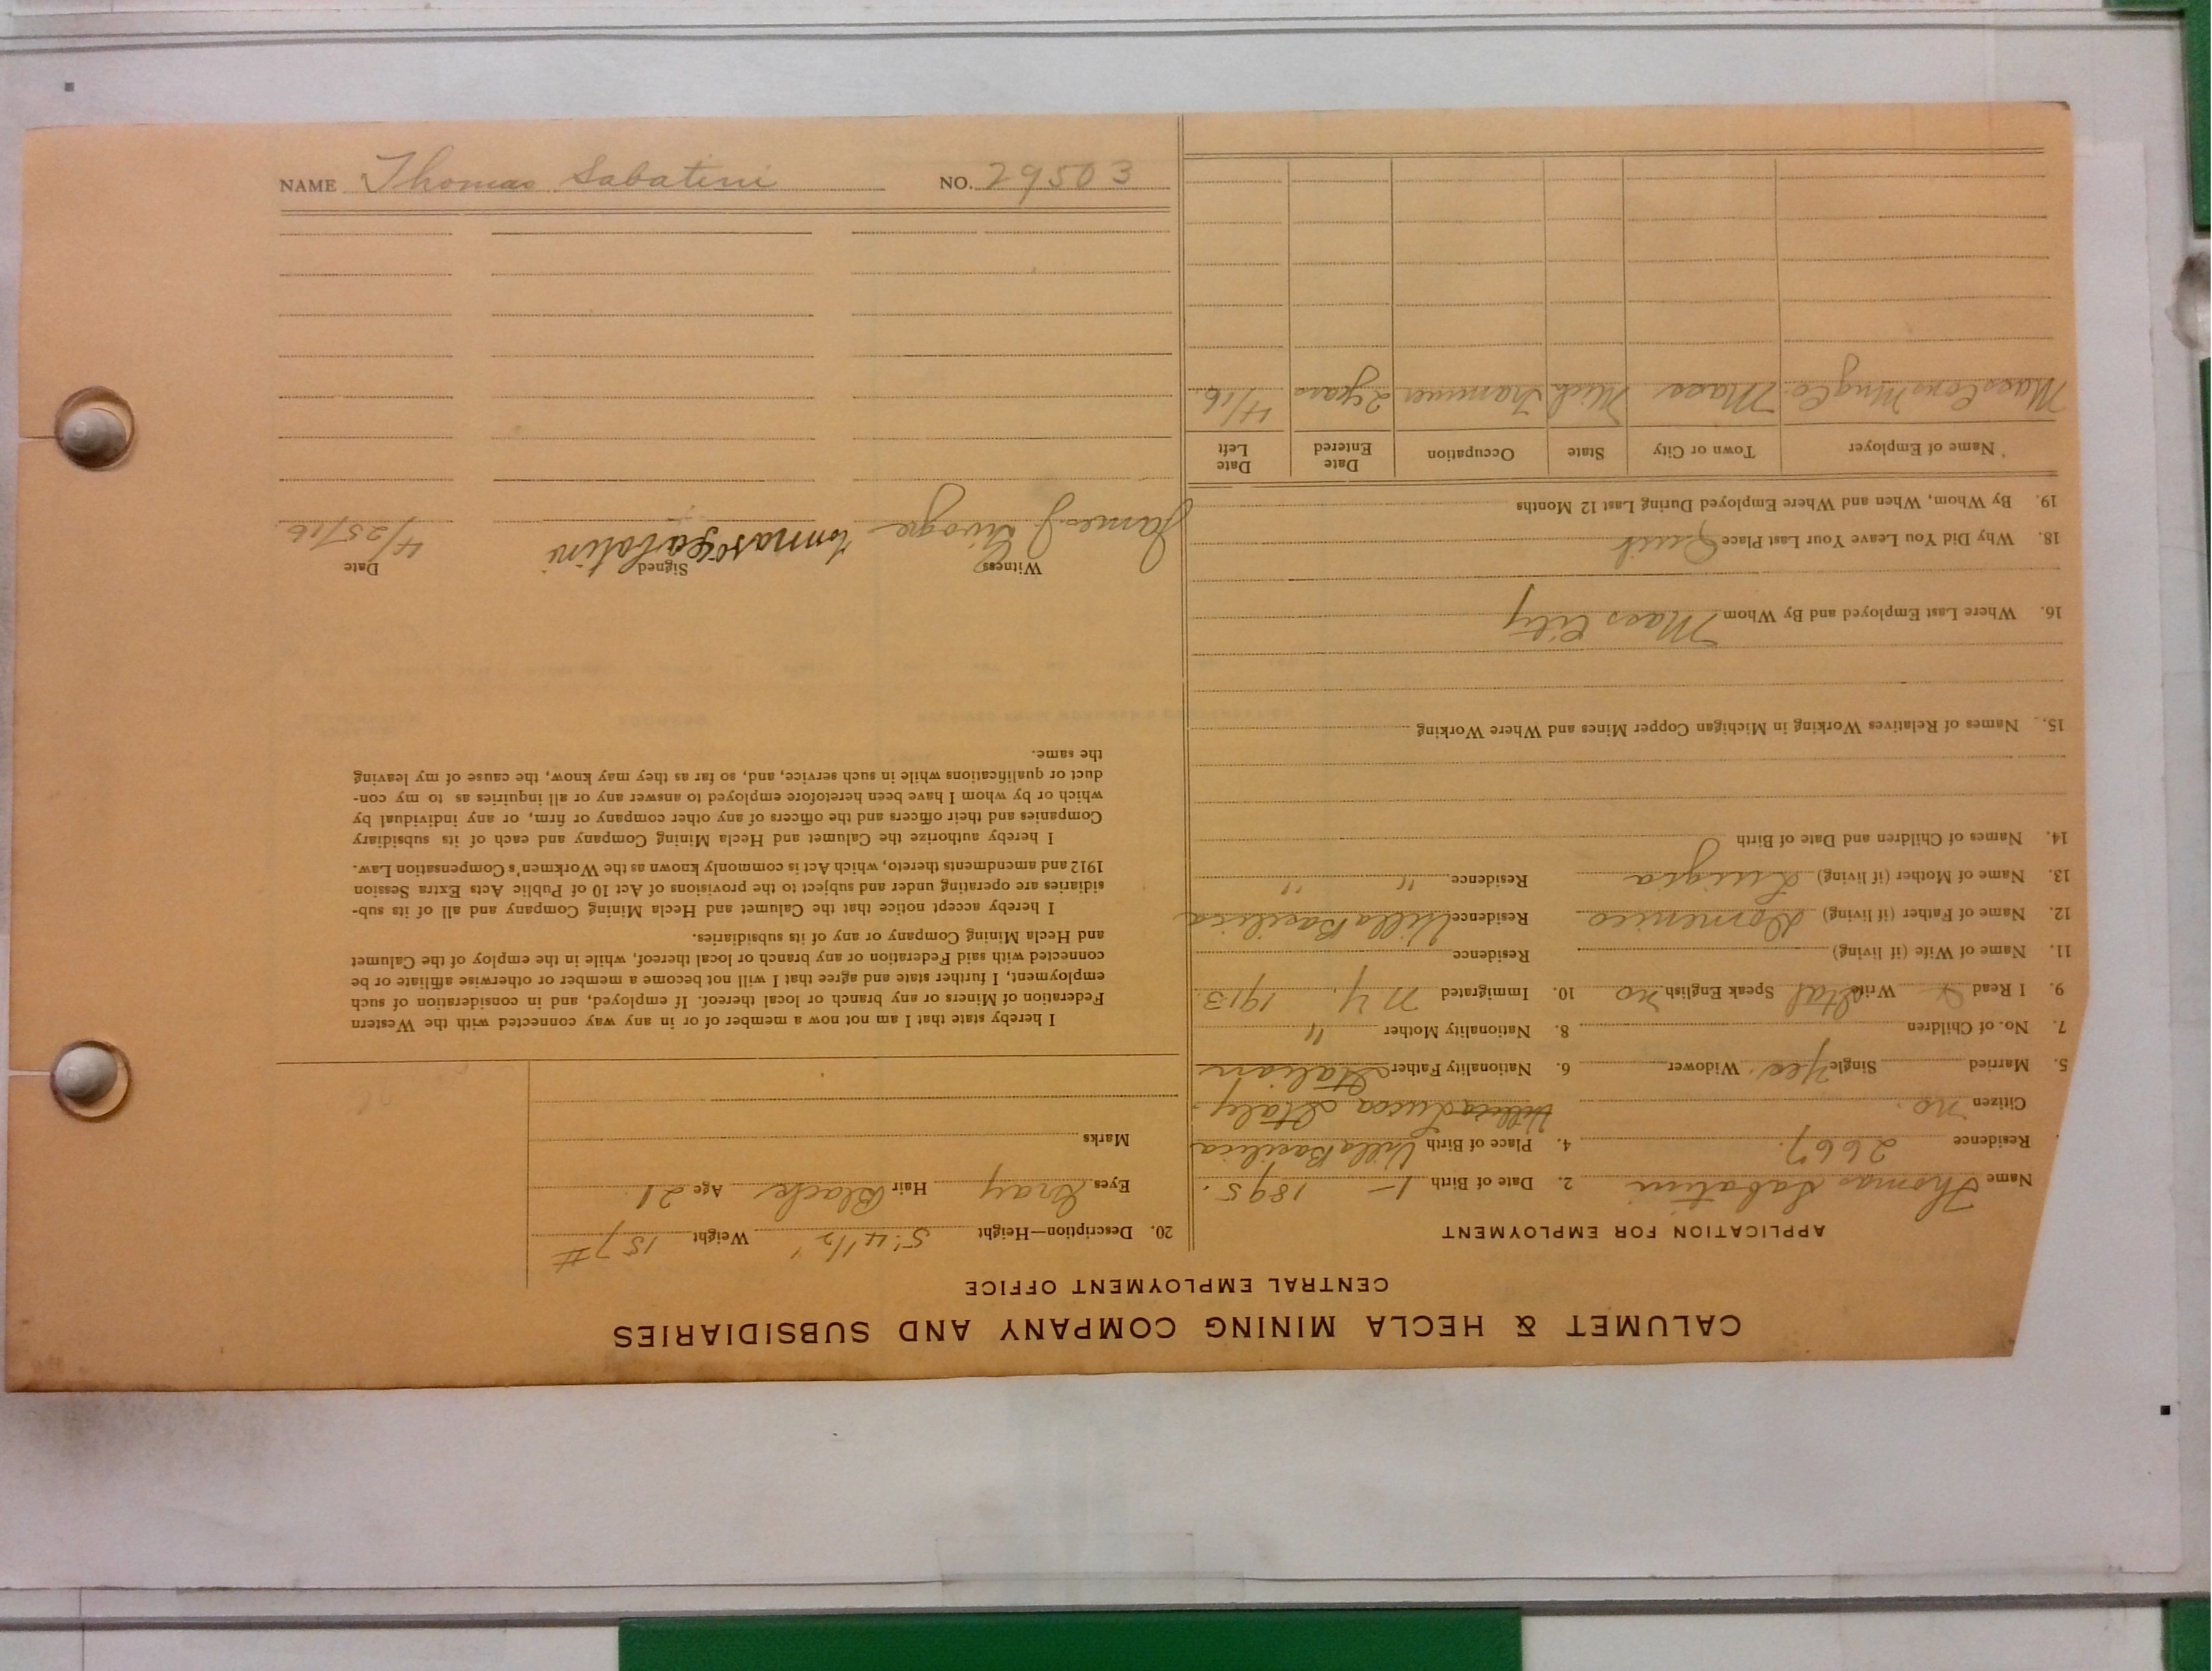 NAME Thomas Sabatini NO. 29503
CALUMET & HECLA MINING COMPANY AND SUBSIDIARIES
CENTRAL EMPLOYMENT OFFICE
APPLICATION FOR EMPLOYMENT
Name Thomas Sabatini 2. Date of Birth 1- 1895.
Residence 2667. 4. Place of Birth Villa Basilica
Citizen no. Lucca Italy.
5. Married Single yes. Widower 6. Nationality Father Italian
7. No. of Children 8. Nationality Mother "
9. I Read & Write Ital Speak English no 10. Immigrated N.Y. 1913.
11. Name of Wife (if living) Residence
12. Name of Father (if living) Domenico Residence Villa Basilica
13. Name of Mother (if living) Luigia Residence " "
14. Names of Children and Date of Birth
15. Names of Relatives Working in Michigan Copper Mines and Where Working
16. Where Last Employed and By Whom Mass City
18. Why Did You Leave Your Last Place Quit
19. By Whom, When and Where Employed During Last 12 Months
Name of Employer Town or City State Occupation Date Entered Date Left
Mass Cons Mng Co. Mass Mich Trammer 2 years 4/16.
20. Description—Height 5' 4 1/2" Weight 157#
Eyes Gray Hair Black Age 21.
Marks
I hereby state that I am not now a member of or in any way connected with the Western
Federation of Miners or any branch or local thereof. If employed, and in consideration of such
employment, I further state and agree that I will not become a member or otherwise affiliate or be
connected with said Federation or any branch or local thereof, while in the employ of the Calumet
and Hecla Mining Company or any of its subsidiaries.
I hereby accept notice that the Calumet and Hecla Mining Company and all of its sub-
sidiaries are operating under and subject to the provisions of Act 10 of Public Acts Extra Session
1912 and amendments thereto, which Act is commonly known as the Workmen's Compensation Law.
I hereby authorize the Calumet and Hecla Mining Company and each of its subsidiary
Companies and their officers and the officers of any other company or firm, or any individual by
which or by whom I have been heretofore employed to answer any or all inquiries as to my con-
duct or qualifications while in such service, and, so far as they may know, the cause of my leaving
the same.
Witness Signed Date
James J. tomaso Sabatini 4/25/16.